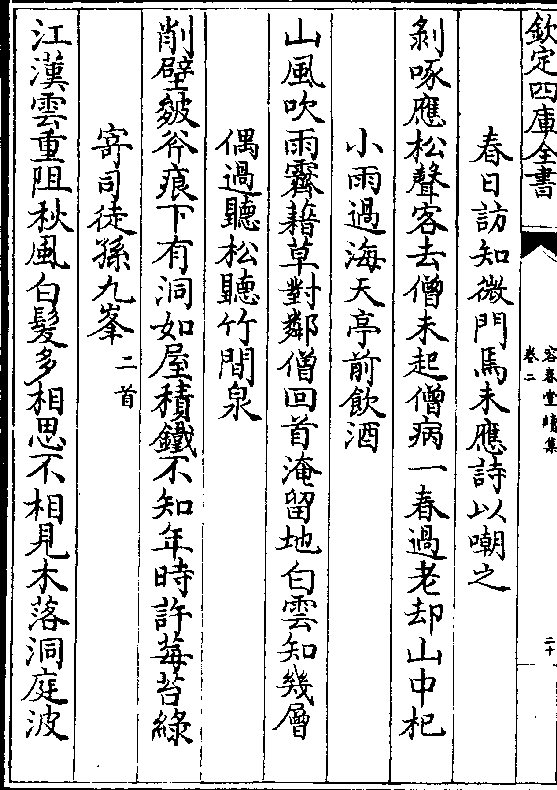 欽定四庫全書
容春堂續集
卷二
二十
春日訪知微門焉未應詩以嘲之
剝啄應松聲客去僧未起僧病一春過老却山中杞
小雨過海天亭前飲酒
山風吹雨霽藉草對鄰僧回首淹留地白雲知幾層
偶過聽松聽竹間泉
削壁皴斧痕下有洞如屋積鐵不知年時許莓苔綠
寄司徒孫九峯二首
江漢雲重阻秋風白髮多相思不相見木落洞庭波